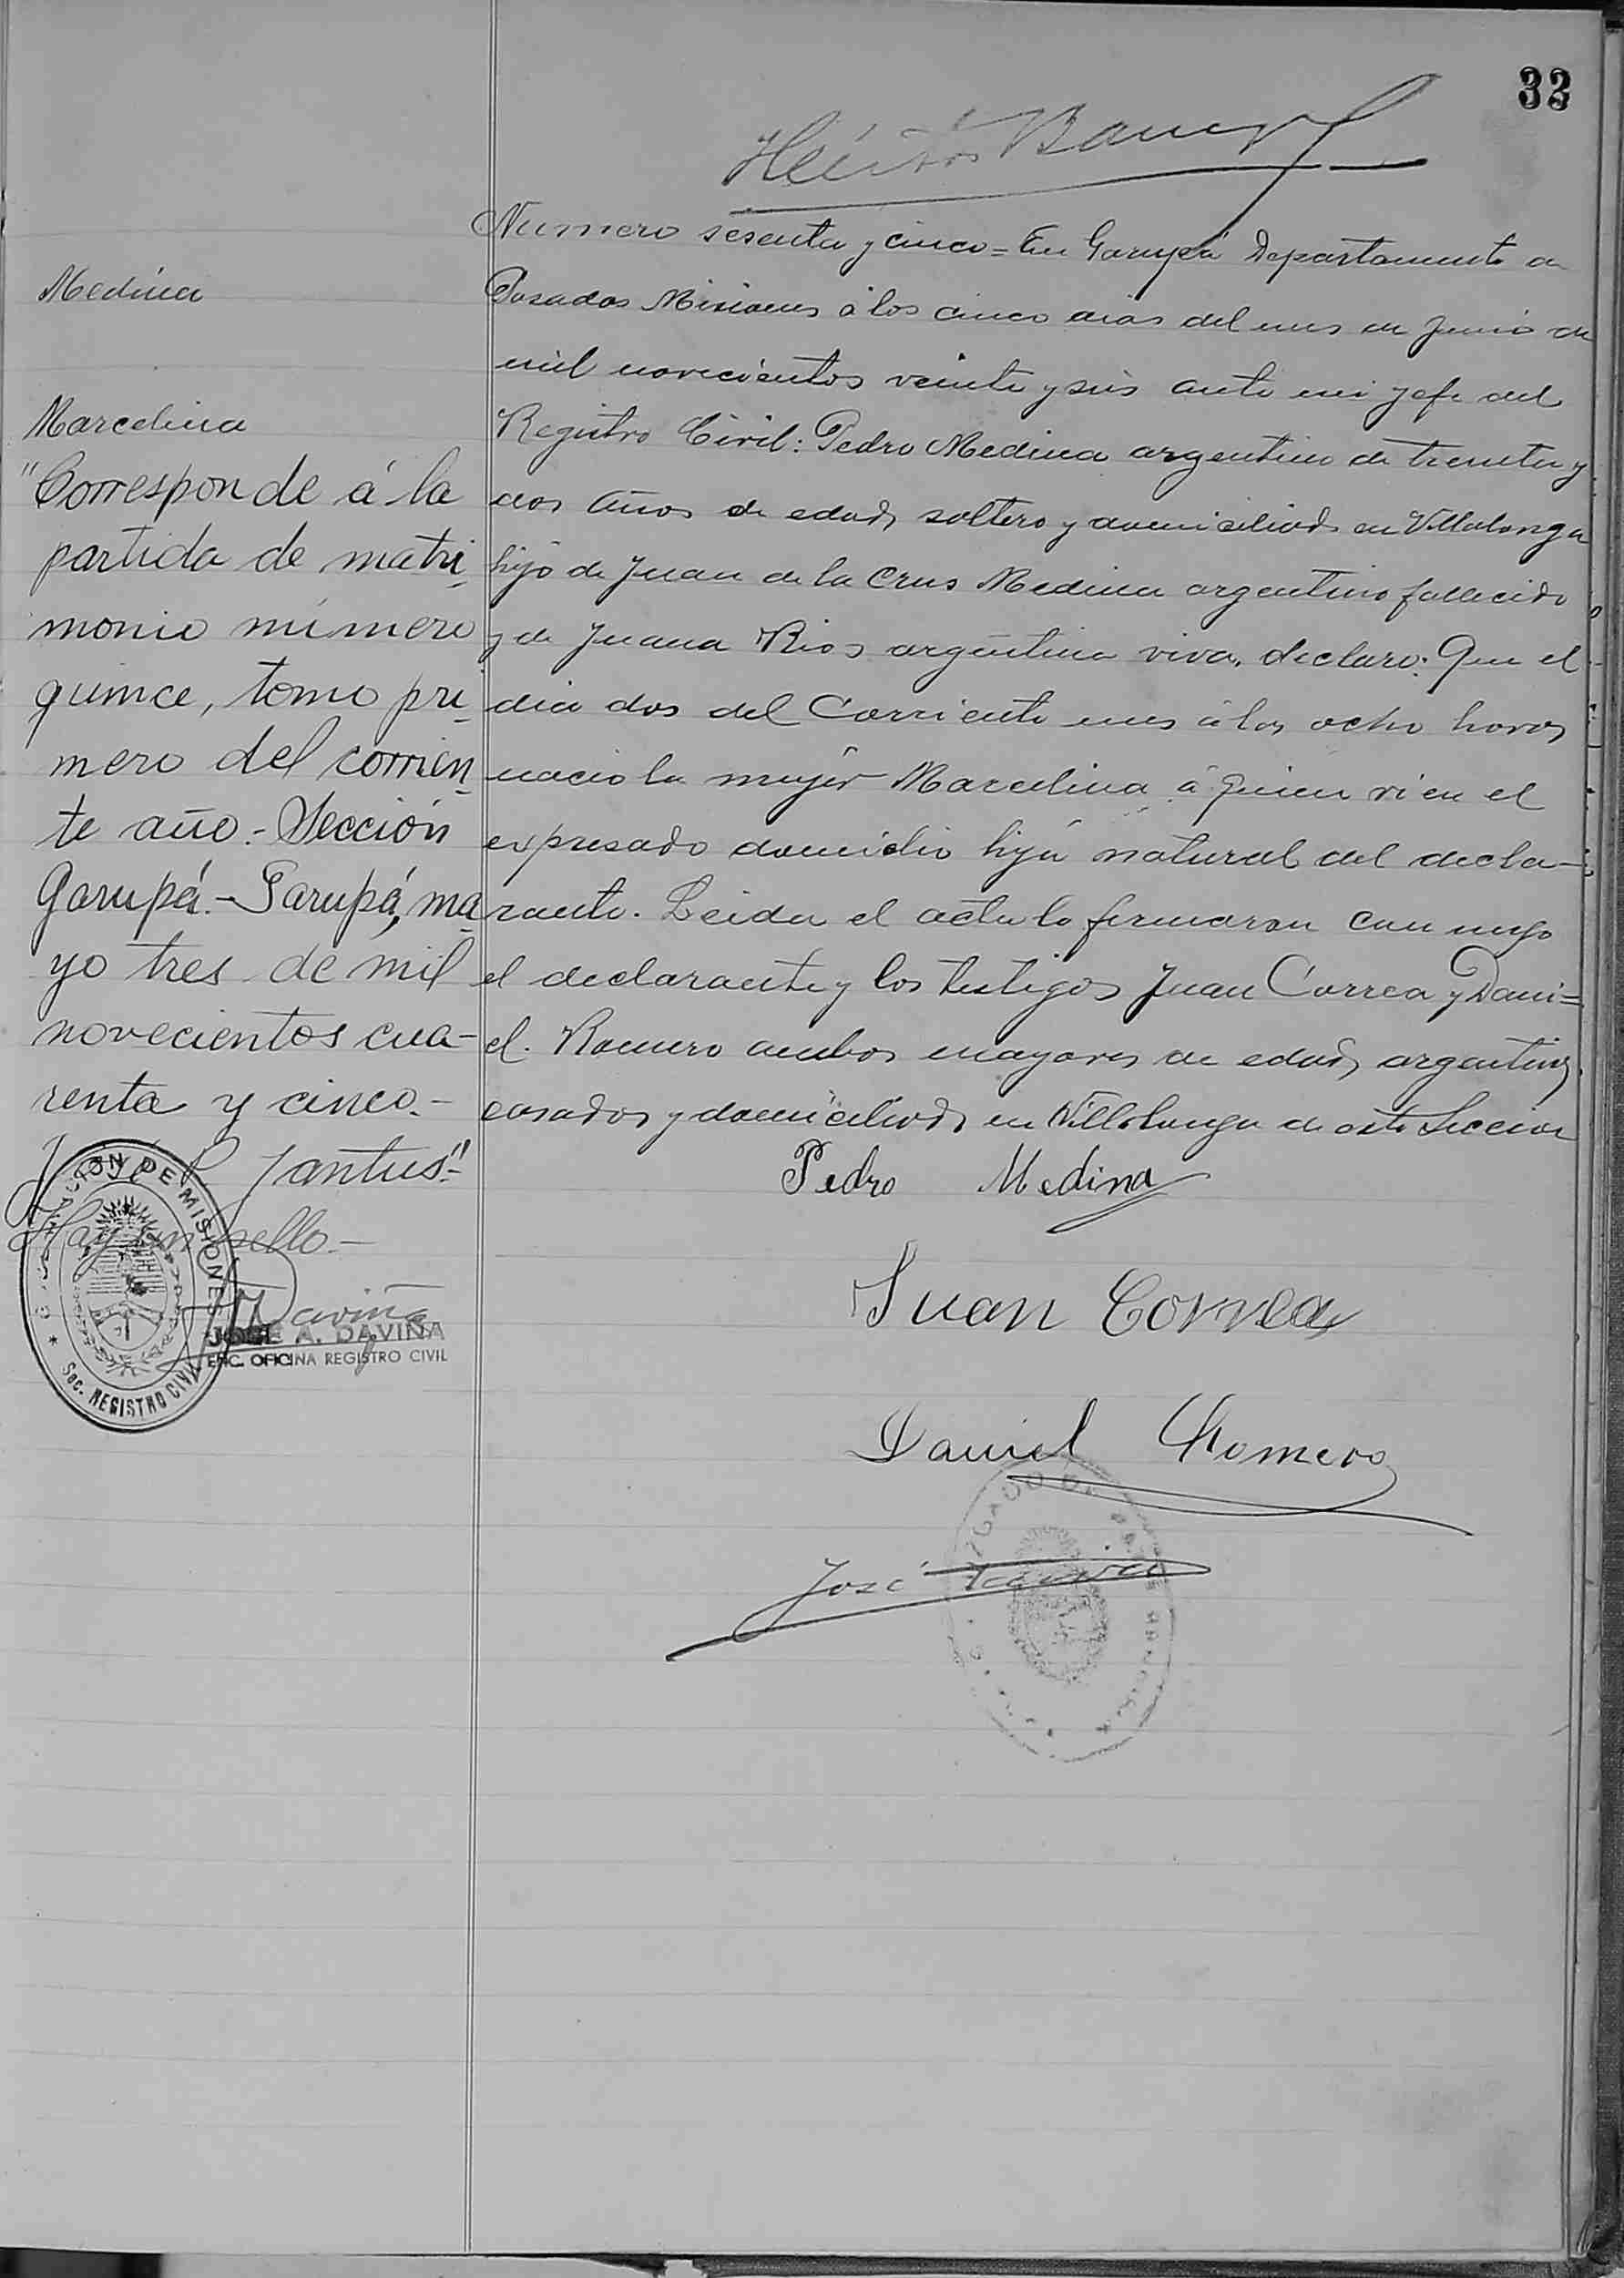 33
Héctor
Medina
Marcelina
"Corresponde á la
partida de matri-
monio número
quince, tomo pri-
mero del corrien-
te año.- Sección
Garupá.- Garupá, ma-
yo tres de mil
novecientos cua-
renta y cinco.-
Santus"
Hay un sello.-
JOSE A. DAVIÑA
ENC. OFICINA REGISTRO CIVIL
DE MISIONES
Sec. REGISTRO CIVIL
Numero sesenta y cinco = En Garupá Departamento de
Posadas Misiones á los cinco dias del mes de Junio de
mil novecientos veinte y seis ante mi Jefe del
Registro Civil: Pedro Medina argentino de treinta y
dos años de edad, soltero y domiciliado en Villalonga
hijo de Juan de la Crus Medina argentino fallecido
y de Juana Rios argentina viva, declaro: Que el
dia dos del Corriente mes á las ocho horas
nacio la mujer Marcelina á quien vi en el
expresado domicilio hija natural del decla-
rante. Leida el acta la firmaron conmigo
el declarante y los testigos Juan Correa y Dani=
el Romero ambos mayores de edad, argentinos,
casados y domiciliados en Villalonga de esta Seccion
Pedro Medina
Juan Correa
Daniel Romero
José